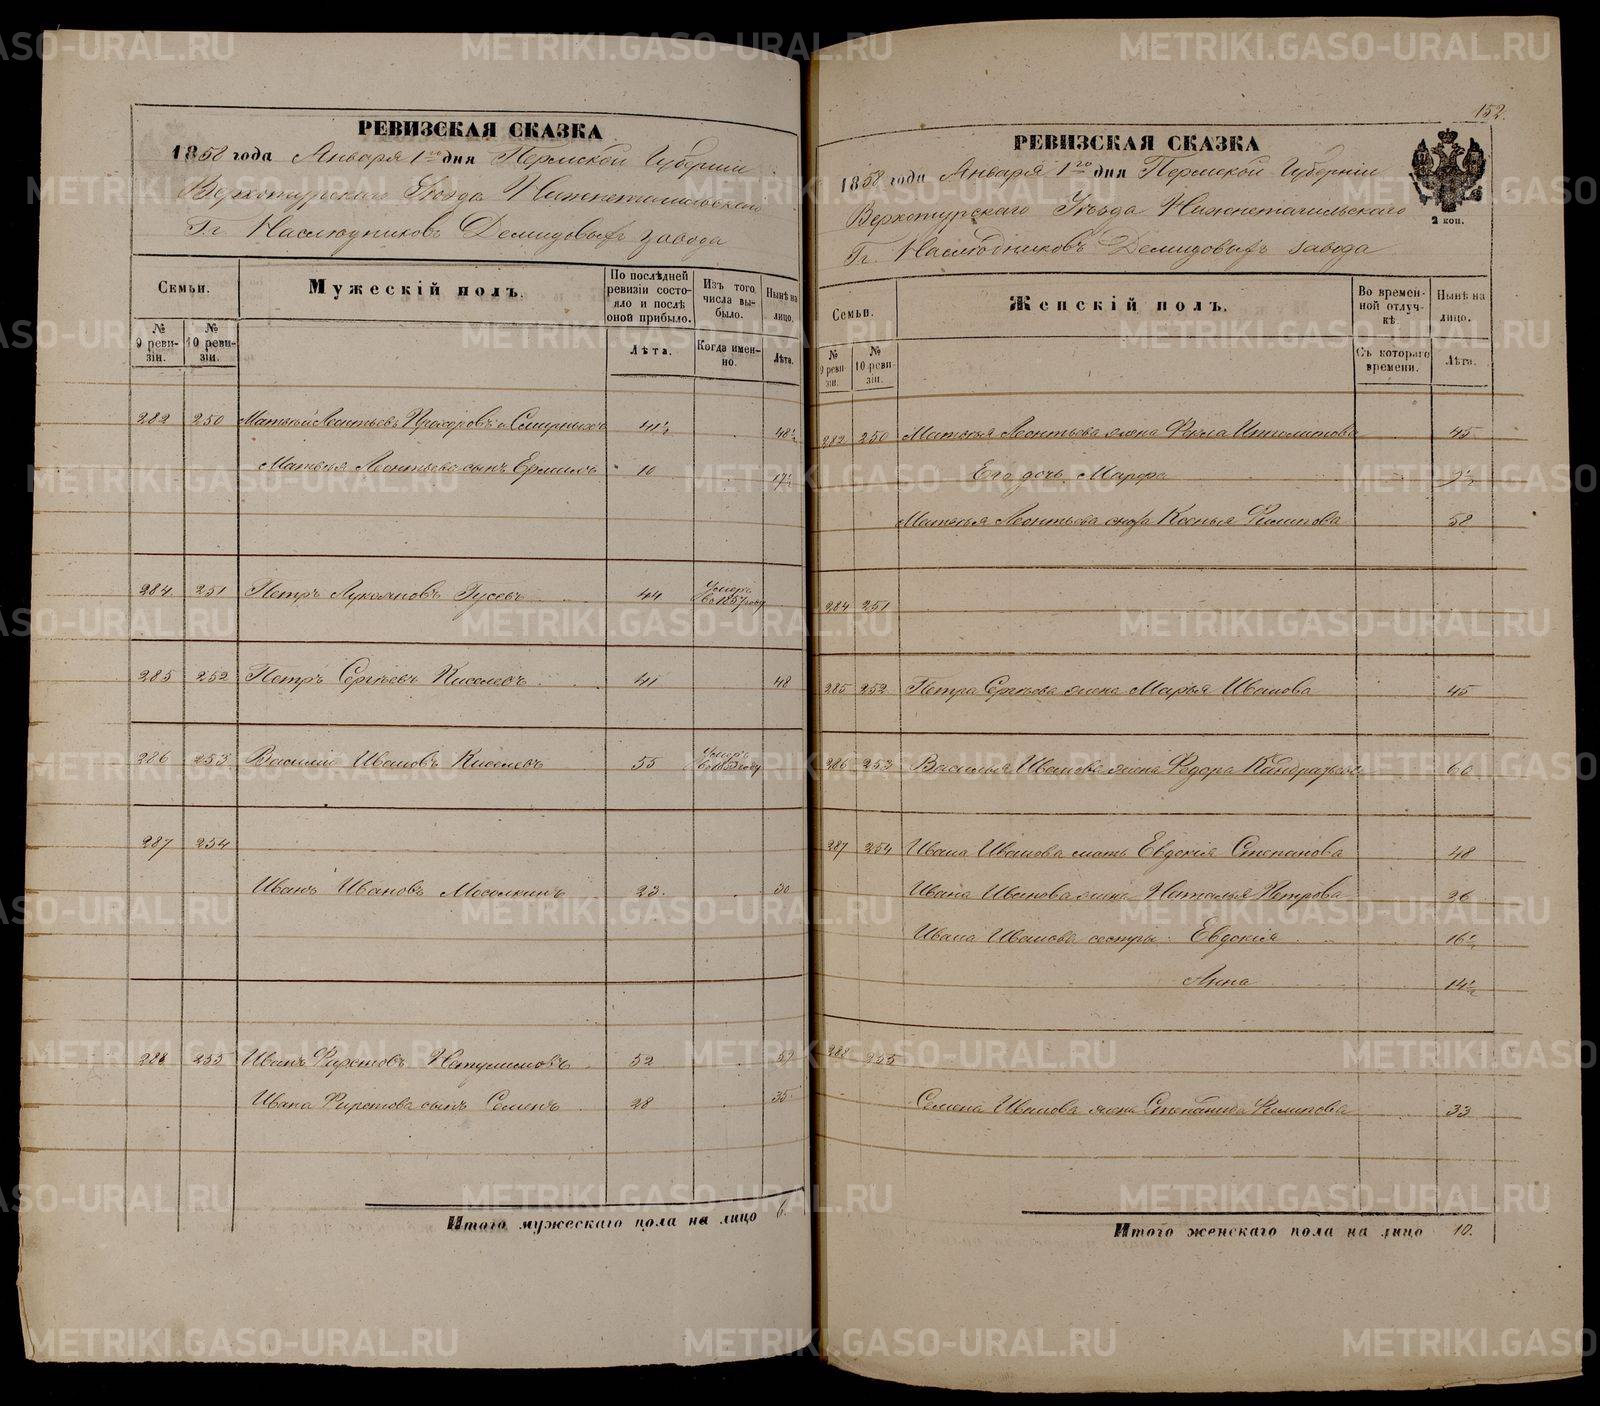 РЕВИЗСКАЯ СКАЗКА
1858 года Января 1го дня Пермской Губерніи
Верхотурскаго Уѣзда Нижнетагильскаго
Гг. Наслѣдниковъ Демидовыхъ завода
Семьи.
Мужескій полъ.
По послѣдней ревизіи состояло и послѣ оной прибыло.
Изъ того числа выбыло.
Нынѣ на лицо.
№ 9 ревизіи.
№ 10 ревизіи.
Лѣта.
Когда именно.
Лѣта.
282 250 Матвѣй Леонтьевъ Прохоровъ 41½ 48½
Матвѣя Леонтьева сынъ Ермилъ 10 17½
284 251 Петръ Лукояновъ Гусевъ 44 Умеръ въ 1857 году
285 252 Петръ Сергѣевъ Киселевъ 41 48
286 253 Василій Ивановъ Киселевъ 55 Умеръ
287 254
Иванъ Ивановъ Мосолкинъ 23 30
288 255 Иванъ 52 59
Ивана сынъ Семенъ 28 35
Итого мужескаго пола на лицо 6.
152.
РЕВИЗСКАЯ СКАЗКА
1858 года Января 1го дня Пермской Губерніи
Верхотурскаго Уѣзда Нижнетагильскаго
Гг. Наслѣдниковъ Демидовыхъ завода
2 коп.
Семьи.
Женскій полъ.
Во временной отлучкѣ.
Нынѣ на лицо.
№ 9 ревизіи.
№ 10 ревизіи.
Съ котораго времени.
Лѣта.
282 250 Матвѣя Леонтьева жена Фекла 45
Его дочь Марфа 9½
Матвѣя Леонтьева Филипова 58
284 251
285 252 Петра Сергѣева жена Марья Иванова 45
286 253 Василья Иванова жена Федора 60
287 254 Ивана Иванова мать Евдокія Степанова 48
Ивана Иванова жена Наталья Петрова 26
Ивана Иванова сестры: Евдокія 16½
Анна 14½
288 255
Семена Иванова жена Степанида Филипова 33
Итого женскаго пола на лицо 10.
METRIKI.GASO-URAL.RU